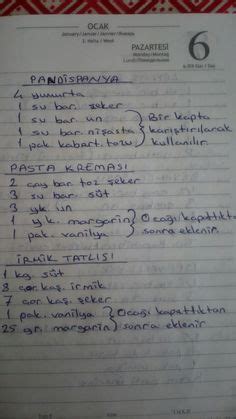 OCAK
January/Januar/Janvier/Январь
2. Hafta / Week
PAZARTESİ
Monday/Montag
6
PANDİSPANYA
4 yumurta
1 su bar. şeker
1 su bar. un
1 su bar. nişasta
1 pak. kabart. tozu
Bir kapta
karıştırılarak
kullanılır.
PASTA KREMASI
2 çay bar toz şeker
3 su bar. süt
3 yk. un
1 yk. margarin
1 pak. vanilya
Ocağı kapattıktan
sonra eklenir.
İRMİK TATLISI
1 kg. süt
8 çor. kaş. irmik
7 çor. kaş. şeker
1 pak. vanilya
25 gr. margarin
Ocağı kapattıktan
sonra eklenir